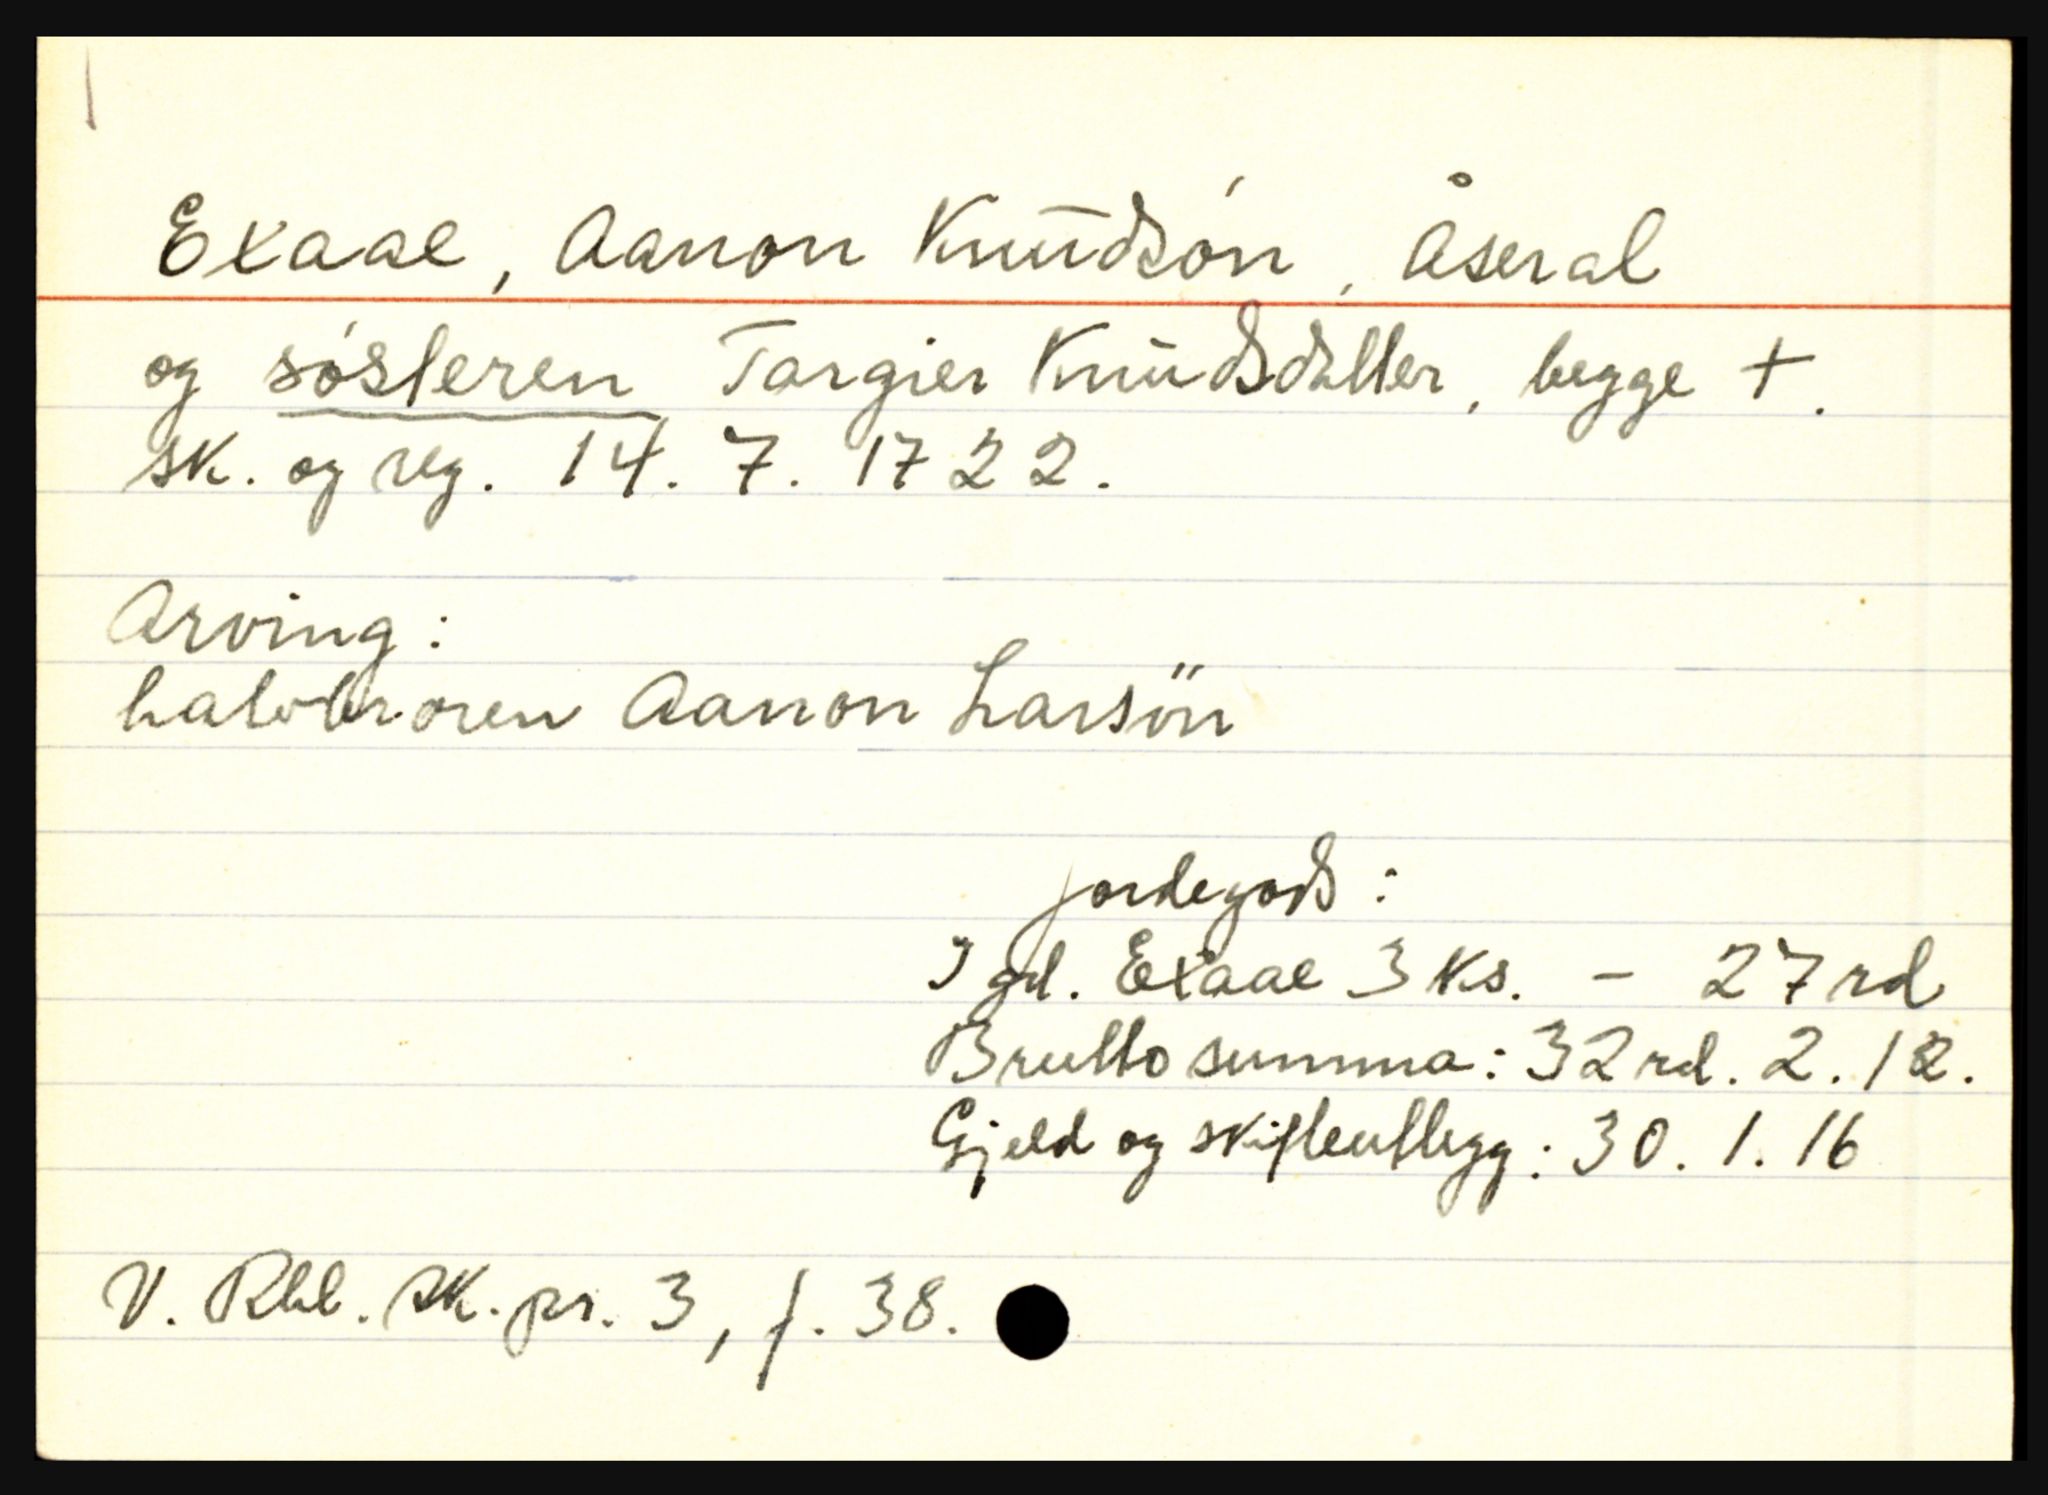 Exaae, Aanon Knudsón, Åseral
og sósteren Targier Knudsdatter, begge +.
sk. og reg. 14. 7. 1722.
Arving:
halvbroren Aanon Larsön
jordegods:
I gd. Exaae 3 ks. - 27 rd
Brutto summa: 32 rd. 2. 12.
Gjeld og skifteutlegg: 30. 1. 16
V. Rbl. sk. pr. 3, f. 38.